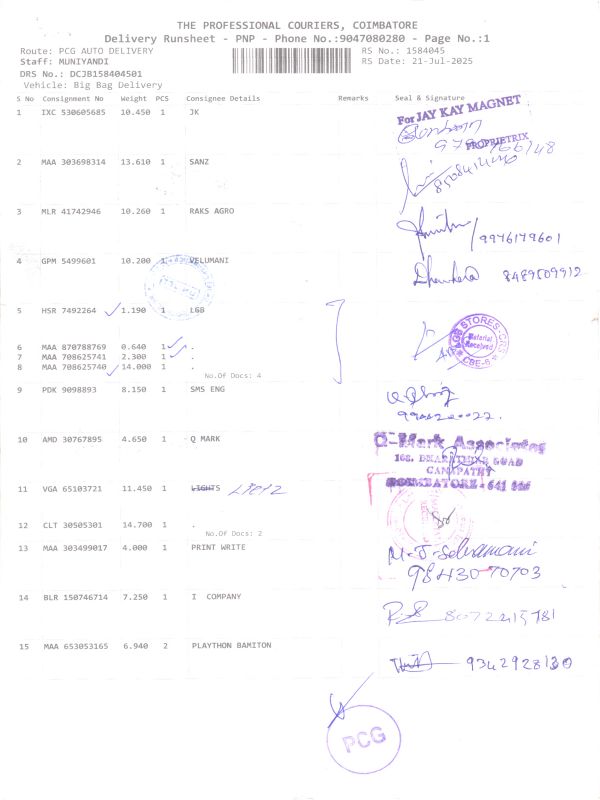 THE PROFESSIONAL COURIERS, COIMBATORE
Delivery Runsheet - PNP - Phone No.:9047080280 - Page No.:1
Route: PCG AUTO DELIVERY RS No.: 1584045
Staff: MUNIYANDI RS Date: 21-Jul-2025
DRS No.: DCJB158404501
Vehicle: Big Bag Delivery
S No Consignment No Weight PCS Consignee Details Remarks Seal & Signature
1 IXC 530605685 10.450 1 JK
For JAY KAY MAGNET
PROPRIETRIX
2 MAA 303698314 13.610 1 SANZ
3 MLR 41742946 10.260 1 RAKS AGRO
9976179601
4 GPM 5499601 10.200 1 VELUMANI
8489509912
5 HSR 7492264 1.190 1 LGB
LGB STORES-CRS
Material
Received
CBE-6
6 MAA 870788769 0.640 1 .
7 MAA 708625741 2.300 1 .
8 MAA 708625740 14.000 1 .
No.Of Docs: 4
9 PDK 9098893 8.150 1 SMS ENG
10 AMD 30767895 4.650 1 Q MARK
Q-Mark Associates
108, BHARATHING ROAD
GANAPATHY
COIMBATORE - 641 006
11 VGA 65103721 11.450 1 LIGHTS
12 CLT 30505301 14.700 1 .
No.Of Docs: 2
13 MAA 303499017 4.000 1 PRINT WRITE
M. J. Selvamani
98430 70703
14 BLR 150746714 7.250 1 I COMPANY
8072215781
15 MAA 653053165 6.940 2 PLAYTHON BAMITON
9342928130
PCG